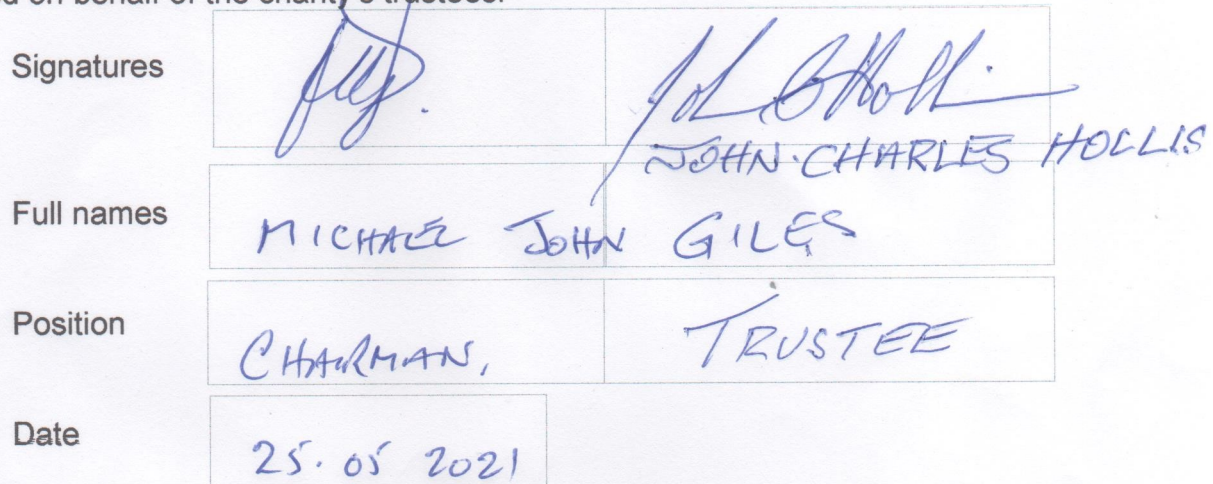 on behalf of the charity's trustees.
Signatures
John C Hollis
JOHN CHARLES HOLLIS
Full names
MICHAEL JOHN GILES
Position
CHAIRMAN, TRUSTEE
Date
25.05 2021